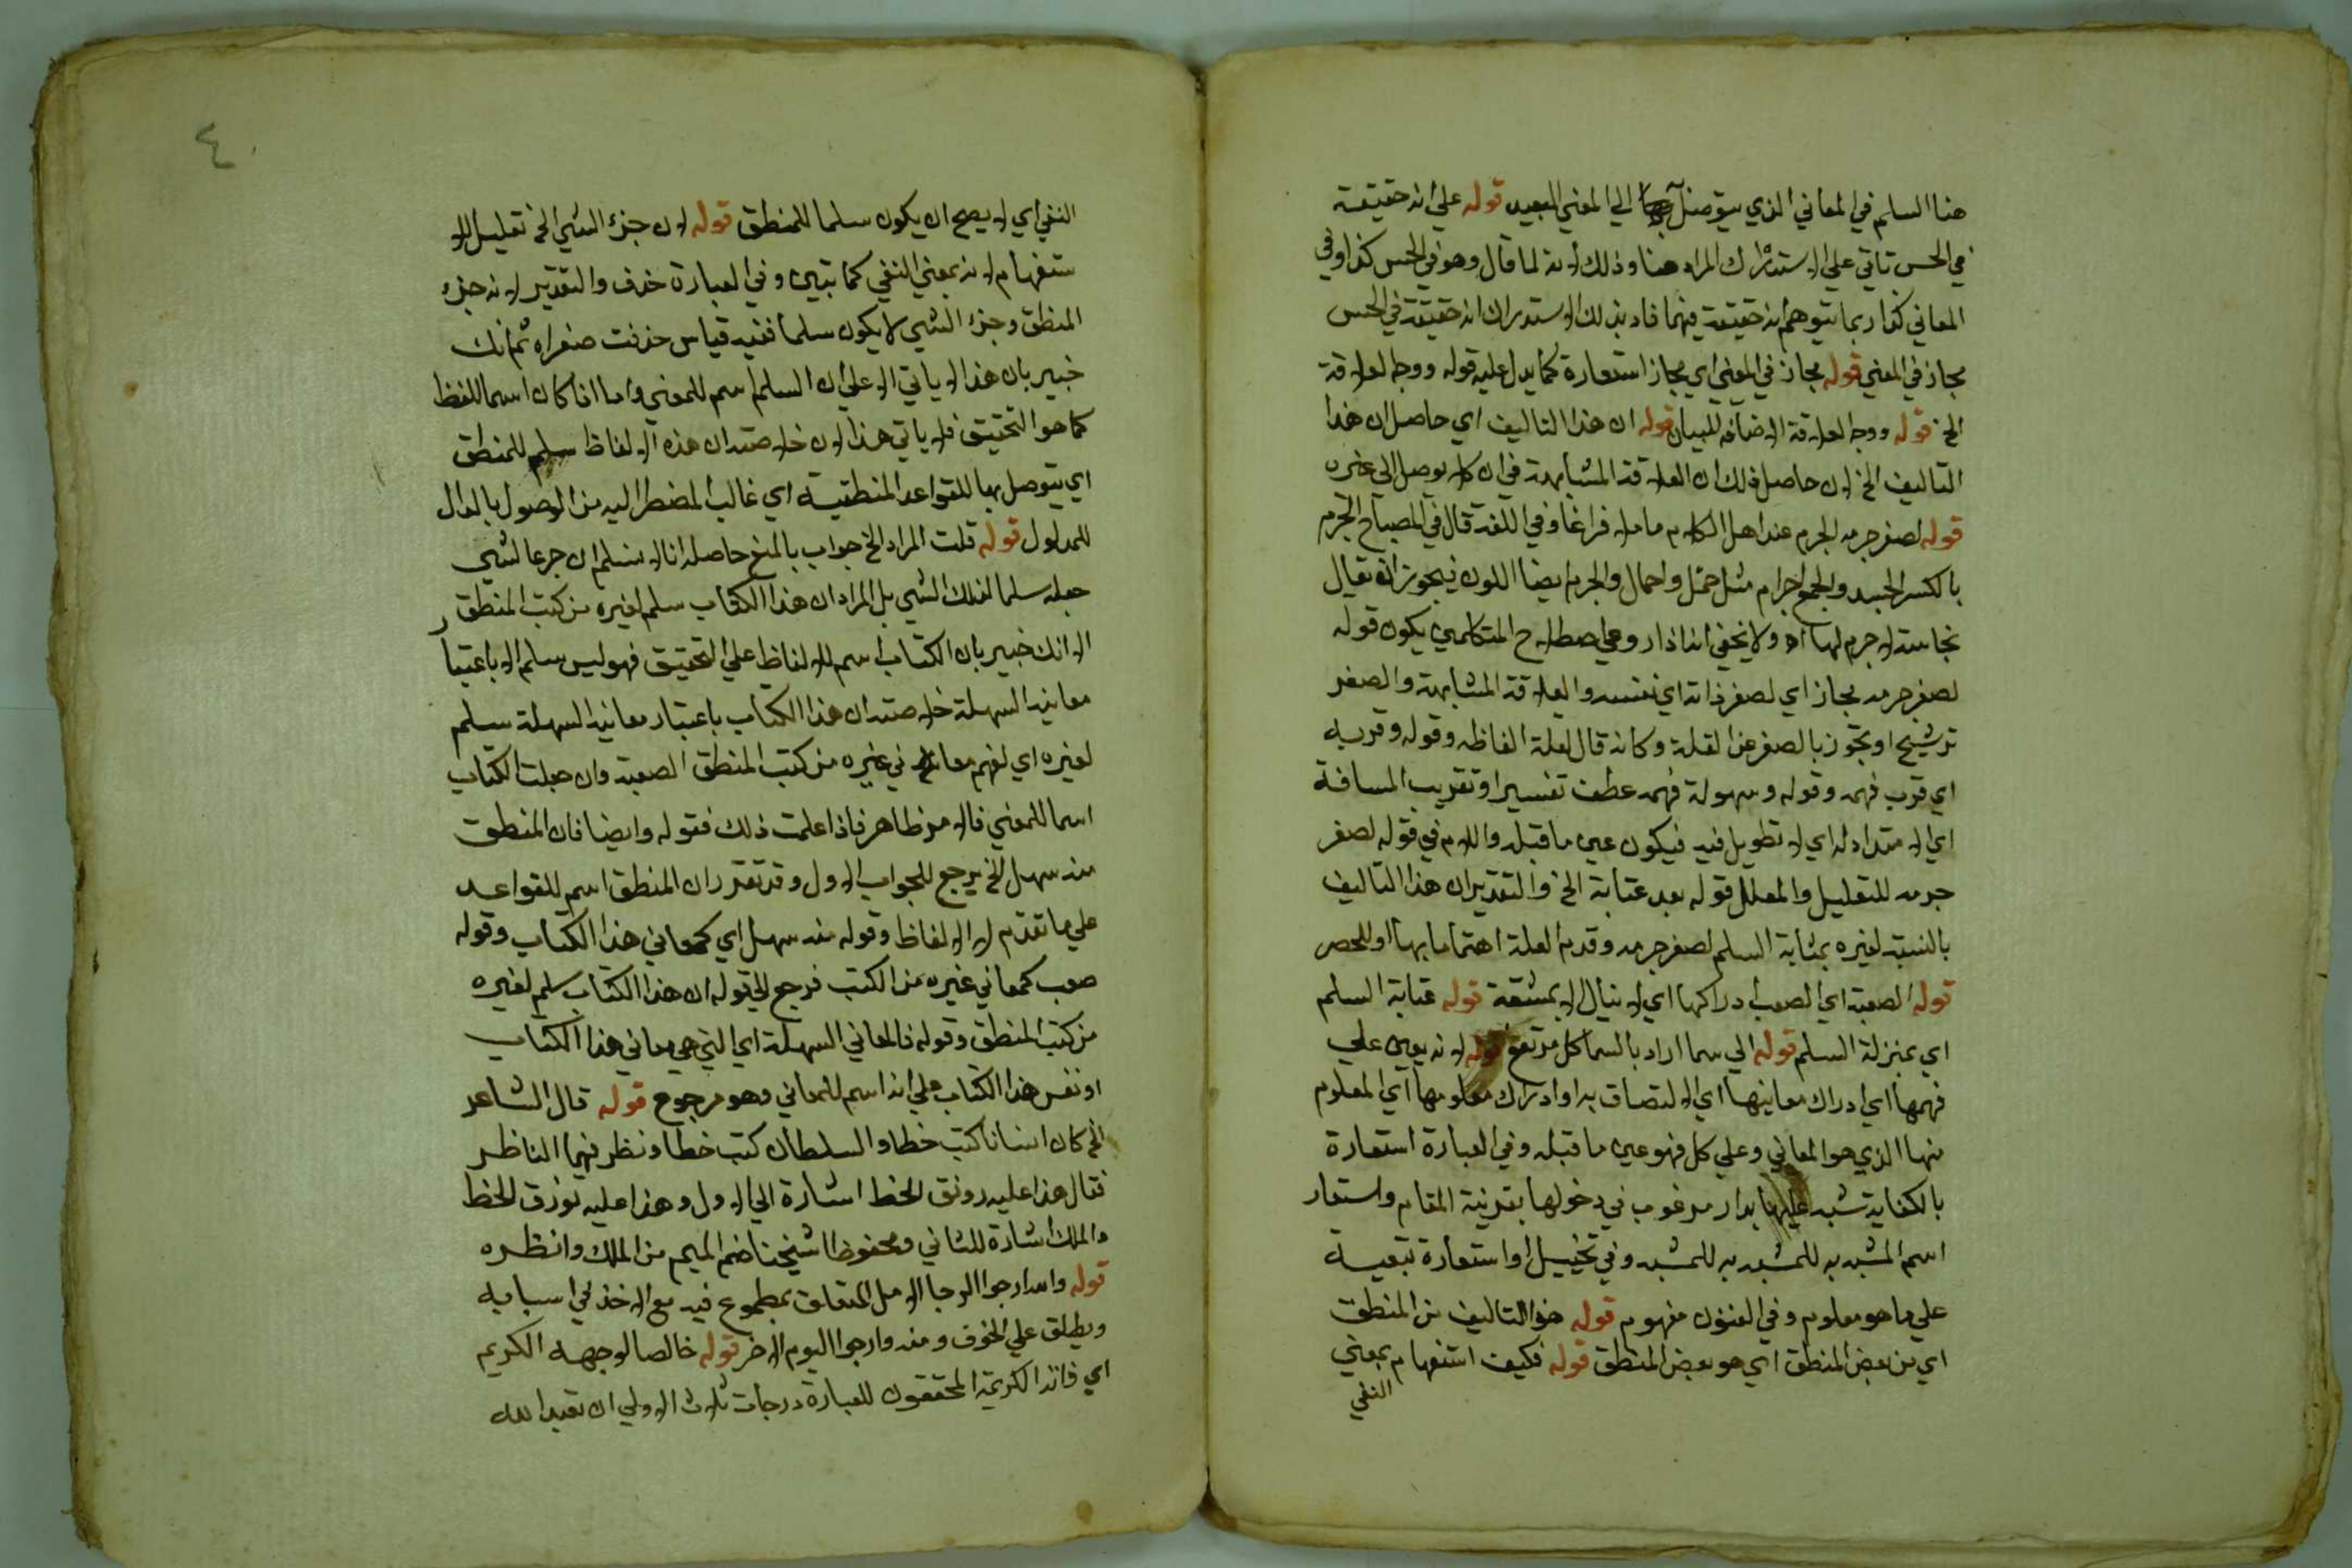 هنا السلم في المعاني الذي يتوصل بها الي المعني البعيد قوله علي انه حقيقة
في الحس تاتي علي الاستدراك المراد هنا وذلك لانه لما قال وهو في الحس كذا وفي
المعاني كذا ربما يتوهم انه حقيقة فيهما فافاد بذلك الاستدراك انه حقيقة في الحس
مجاز في المعني قوله مجاز في المعني اي مجاز استعارة كما يدل عليه قوله ووجه العلاقة
الخ قوله ووجه العلاقة الاضافة للبيان قوله ان هذا التاليف اي حاصل ان هذا
التاليف الخ لان حاصل ذلك ان العلاقة المشابهة في ان كلا يوصل الي غيره
قوله لصغر جرمه الجرم عند اهل الكلام ما ملا فراغا وفي اللغة قال في المصباح الجرم
بالكسر الجسد والجمع اجرام مثل حمل واحمال والجرم ايضا اللون فيجوز ان يقال
نجاسة لا جرم لها اه ولا يخفي انه اذا روعي اصطلاح المتكلمين يكون قوله
لصغر جرمه مجاز اي لصغر ذاته اي نفسه والعلاقة المشابهة والصغر
ترشيح او تجوز بالصغر عن القلة وكانه قال لقلة الفاظه وقوله وقربه
اي قرب فهمه وقوله وسهولة فهمه عطف تفسير او تقريب المسافة
اي لا متداد له اي لا تطويل فيه فيكون عين ما قبله واللام في قوله لصغر
جرمه للتعليل والمعلل قوله بعد عتابة الخ والتقدير ان هذا التاليف
بالنسبة لغيره بمثابة السلم لصغر جرمه وقدم العلة اهتماما بها او للحصر
قوله الصعبة اي الصعب ادراكها اي لا ينال الا بمشقة قوله عتابة السلم
اي بمنزلة السلم قوله الي سما اراد بالسما كل مرتفع قوله لانه يعين علي
فهمها اي ادراك معانيها اي الالتصاق به او ادراك معلومها اي المعلوم
منها الذي هو المعاني وعلي كل فهو عين ما قبله وفي العبارة استعارة
بالكناية شبه بدار مرغوب في دخولها بقرينة المقام واستعار
اسم المشبه به للمشبه به للمشبه وفي تخييل او استعارة تبعية
علي ما هو معلوم وفي الفنون مفهوم قوله هذا التاليف من المنطق
اي من بعض المنطق اي هو بعض المنطق قوله فكيف استفهام بمعني
النفي
٤
النفي اي لا يصح ان يكون سلما للمنطق قوله لان جزء الشي الخ تعليل للا
ستفهام لانه بمعني النفي كما تبين وفي العبارة حذف والتقدير لانه جزء
المنطق وجزء الشي لا يكون سلما ففيه قياس حذفت صغراه ثم انك
خبير بان هذا لا ياتي الا علي ان السلم اسم للمعني واما اذا كان اسما للفظ
كما هو التحقيق فلا ياتي هذا لان خلاصته ان هذه الالفاظ سلم للمنطق
اي يتوصل بها للقواعد المنطقية اي غالبا لمضطر اليه من الوصول بالدال
للمدلول قوله قلت المراد الخ جواب بالمنع حاصله انا لا نسلم ان جزءا لشي
جعله سلما لذلك الشي بل المراد ان هذا الكتاب سلم لغيره من كتب المنطق
الا انك خبير بان الكتاب اسم للالفاظ علي التحقيق فهو ليس سلم الا باعتبار
معانيه السهلة خلاصته ان هذا الكتاب باعتبار معانيه السهلة سلم
لغيره اي لفهم معاني غيره من كتب المنطق الصعبة وان جعلت الكتاب
اسما للمعني فالامر ظاهر فاذا علمت ذلك فقوله وايضا فان المنطق
منه سهل الخ يرجع للجواب الاول وقد تقرر ان المنطق اسم للقواعد
علي ما تقدم لا الالفاظ وقوله منه سهل اي كمعاني هذا الكتاب وقوله
صعب كمعاني غيره من الكتب فرجع لقوله ان هذا الكتاب سلم لغيره
من كتب المنطق وقوله فالمعاني السهلة اي التي هي معاني هذا الكتاب
او نفس هذا الكتاب علي انه اسم للمعاني وهو مرجوح قوله قال الشاعر
الخ كان انسانا كتب خطا والسلطان كتب خطا ونظر فيهما الناظر
فقال هذا عليه رونق الخط اشارة الي الاول وهذا عليه رونق الخط
والملك اشارة للثاني ومحفوظ شيخنا ضم الميم من الملك وانظره
قوله واسه ارجوا الرجا الامل المتعلق بمطموع فيه مع الاخذ في اسبابه
ويطلق علي الخوف ومنه وارجوا اليوم الاخر قوله خالصا لوجهه الكريم
اي ذاته الكريمة المحققون للعبارة درجات ثلاث الاولي ان تعبد الله